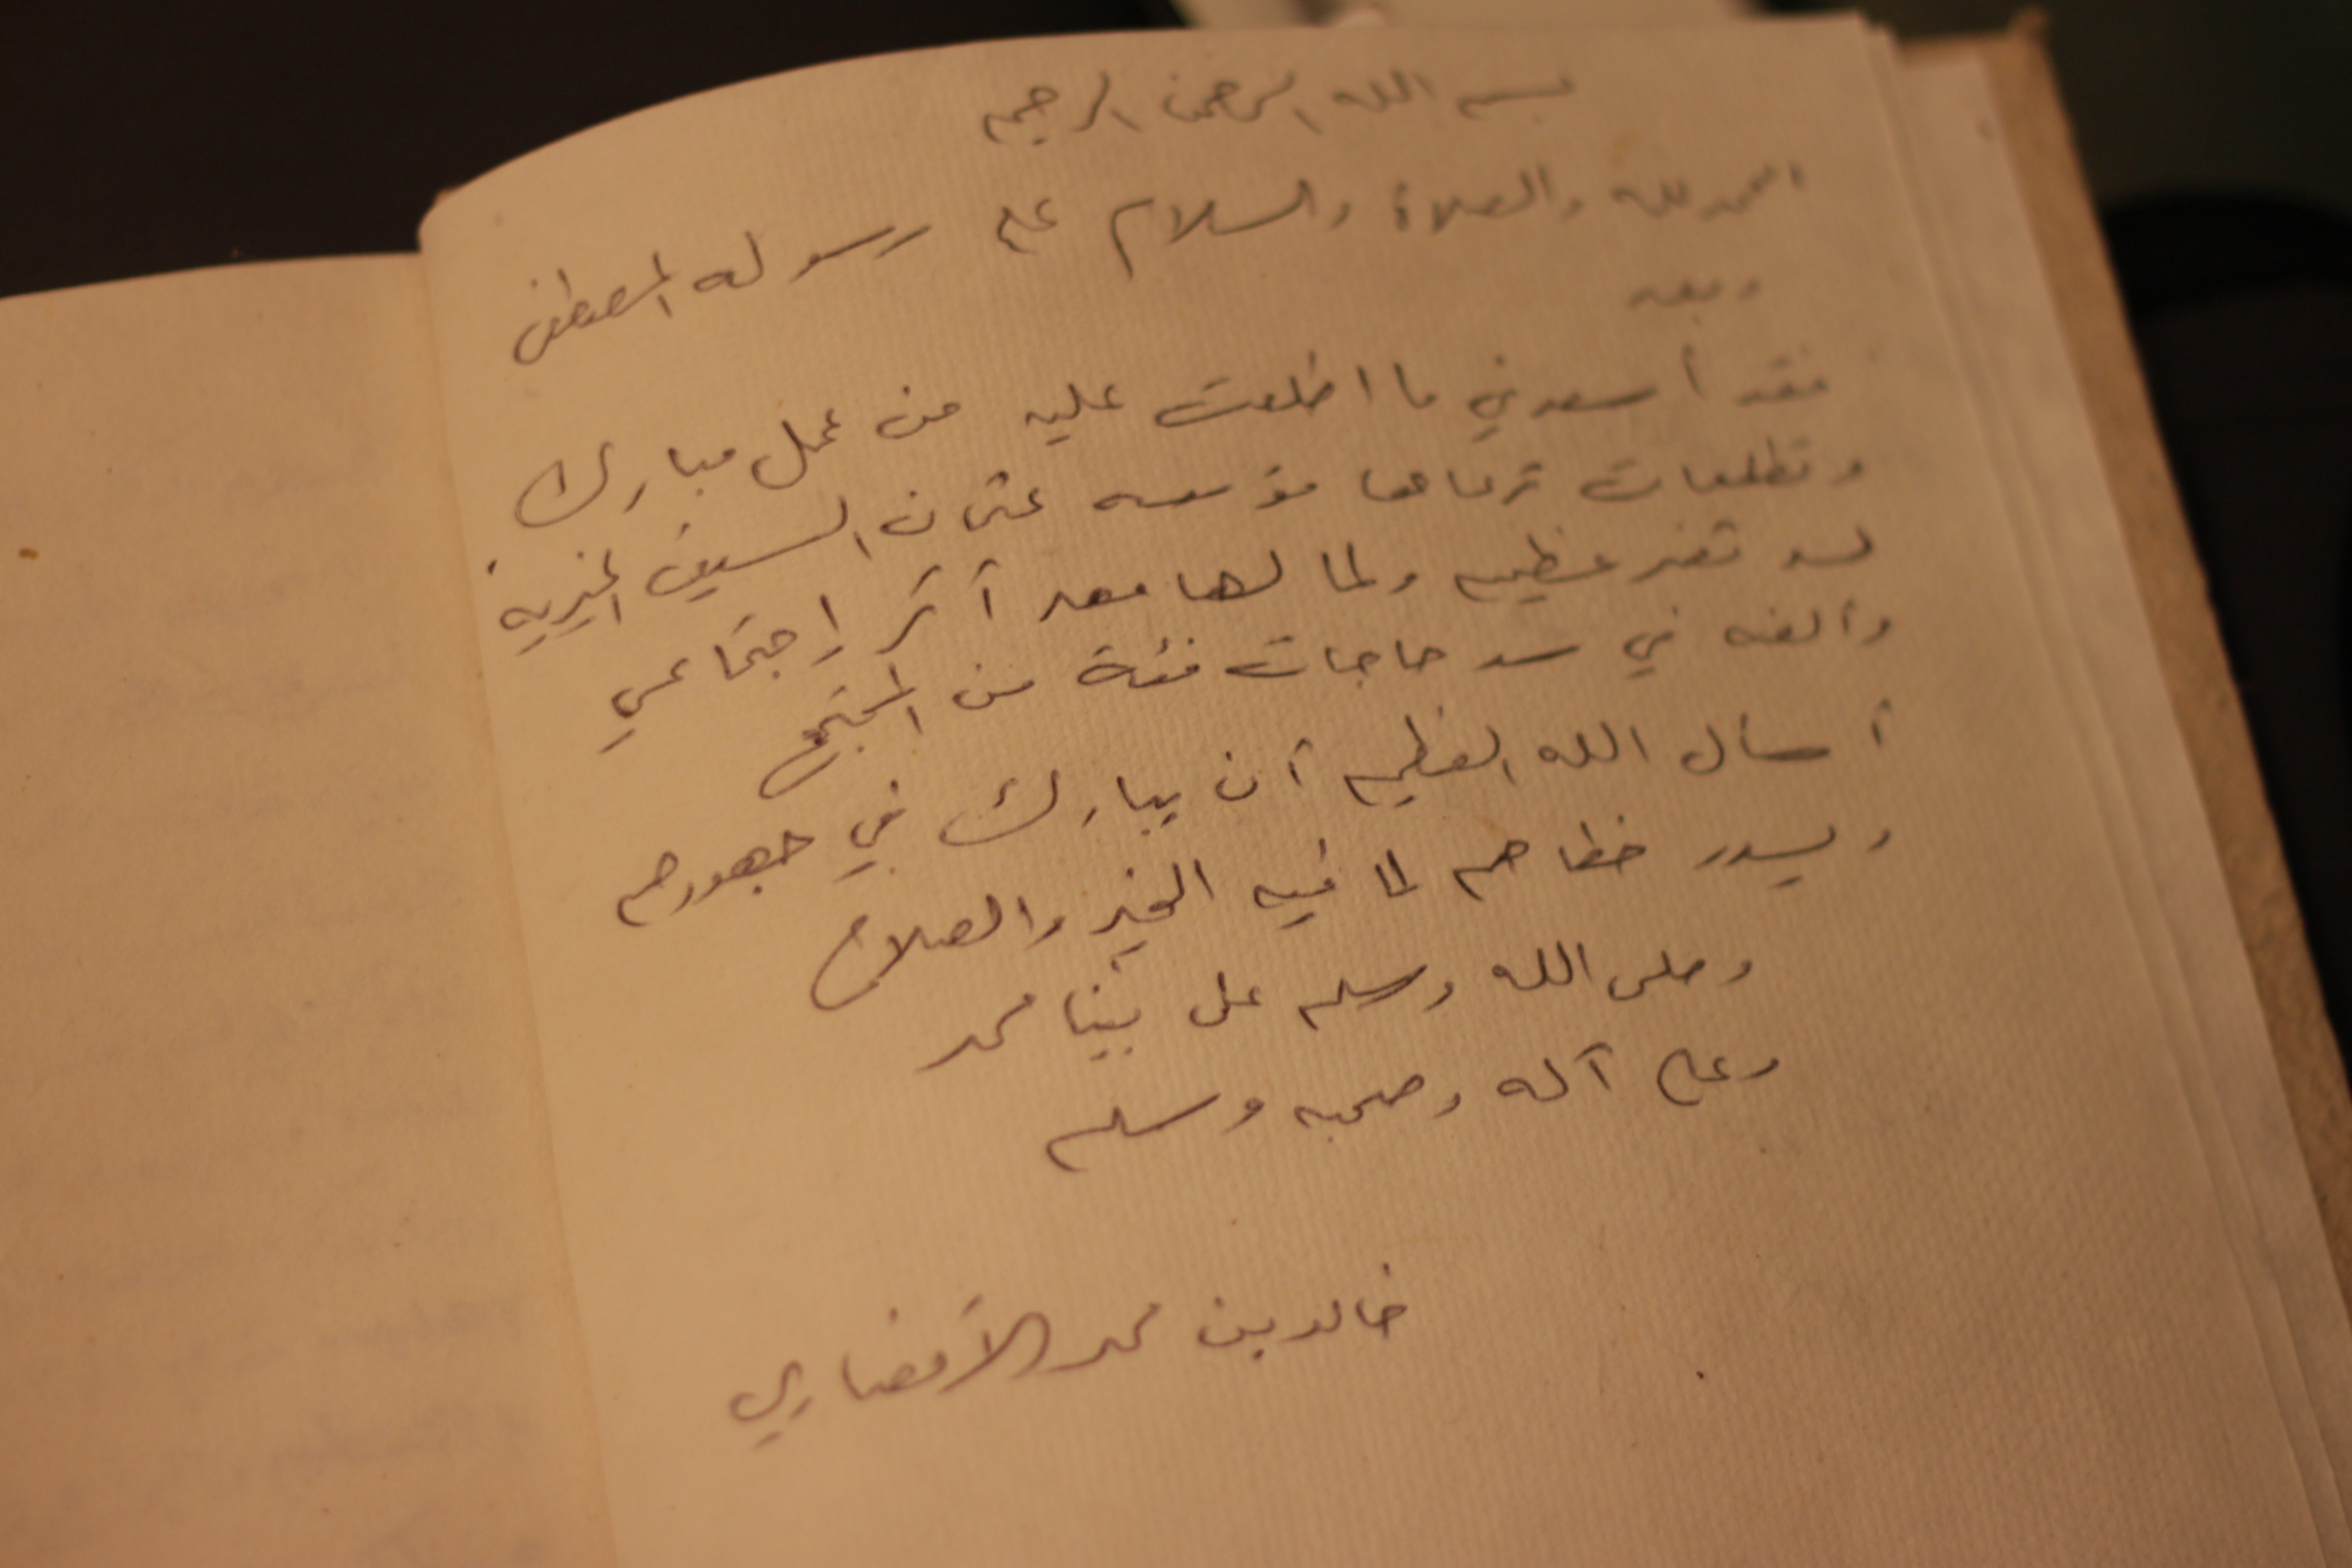 بسم الله الرحمن الرحيم
الحمد لله والصلاة والسلام على رسوله المصطفى
وبعد
فقد أسعدني ما اطلعت عليه من عمل مبارك
وتطلعات ترعاها مؤسسه عثمان السيف الخيريه
لسد ثغر عظيم ولما لها معه أثر إجتماعي
في سد حاجات فئة من المجتمع
أسأل الله العظيم أن يبارك في جهودهم
ويسدد خطاهم لما فيه الخير والصلاح
وصلى الله وسلم على نبينا محمد
وعلى آله وصحبه وسلم
خالد بن محمد الأنصاري